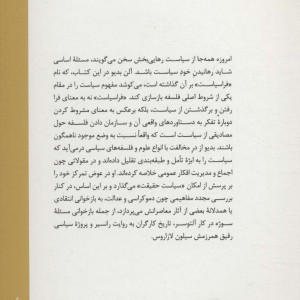 امروزه همه‌جا از سیاست رهایی‌بخش سخن می‌گویند، مسئلهٔ اساسی
شاید رهانیدن خود سیاست باشد. آلن بدیو در این کتاب، که نام
«فراسیاست» بر آن گذاشته است، می‌کوشد مفهوم سیاست را در مقام
یکی از شروط اصلی فلسفه بازسازی کند. «فراسیاست» نه به معنای فرا
رفتن و برگذشتن از سیاست، بلکه برعکس به معنای مشروط کردن
دوبارهٔ تفکر به دستاوردهای واقعی آن و سازمان دادن فلسفه حول
مصادیقی از سیاست است که واقعاً نسبت به وضع موجود ناهمگون
باشند. بدیو از در مخالفت با انواع علوم و فلسفه‌های سیاسی درمی‌آید که
سیاست را به ابژهٔ تأمل و طبقه‌بندی تقلیل داده‌اند و در مقولاتی چون
اجماع و مدیریت افکار عمومی خلاصه کرده‌اند. او در عوض تمرکز خود را
بر پرسش از امکان «سیاست حقیقت» می‌گذارد و بر این اساس، در کنار
بررسی مجدد مفاهیمی چون دموکراسی و عدالت، به بازخوانی انتقادی
یا همدلانهٔ بعضی از آثار معاصرانش می‌پردازد، از جمله بازخوانی مسئلهٔ
سوژه در کار آلتوسر، تاریخ کارگران به روایت رانسیر و پروژهٔ سیاسی
رفیق همرزمش سیلون لازاروس.